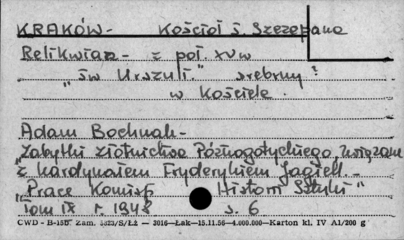 KRAKÓW - Kościół ś. Szczepana
Relikwiarz - z poł. XV w
"św Urszuli." srebrny ?
w Kościele.
Adam Bochnak -
"Zabytki złotnictwa Późnogotyckiego związane
z kardynałem Fryderykiem Jagiell. -
"Prace Komisji Historii Sztuki"
Tom IX r. 1948 s. 6
CWD - B-15b. Zam. /S/Łż — 2016—Łak—15.11.56—4.000.000—Karton kl. IV A1/200 g